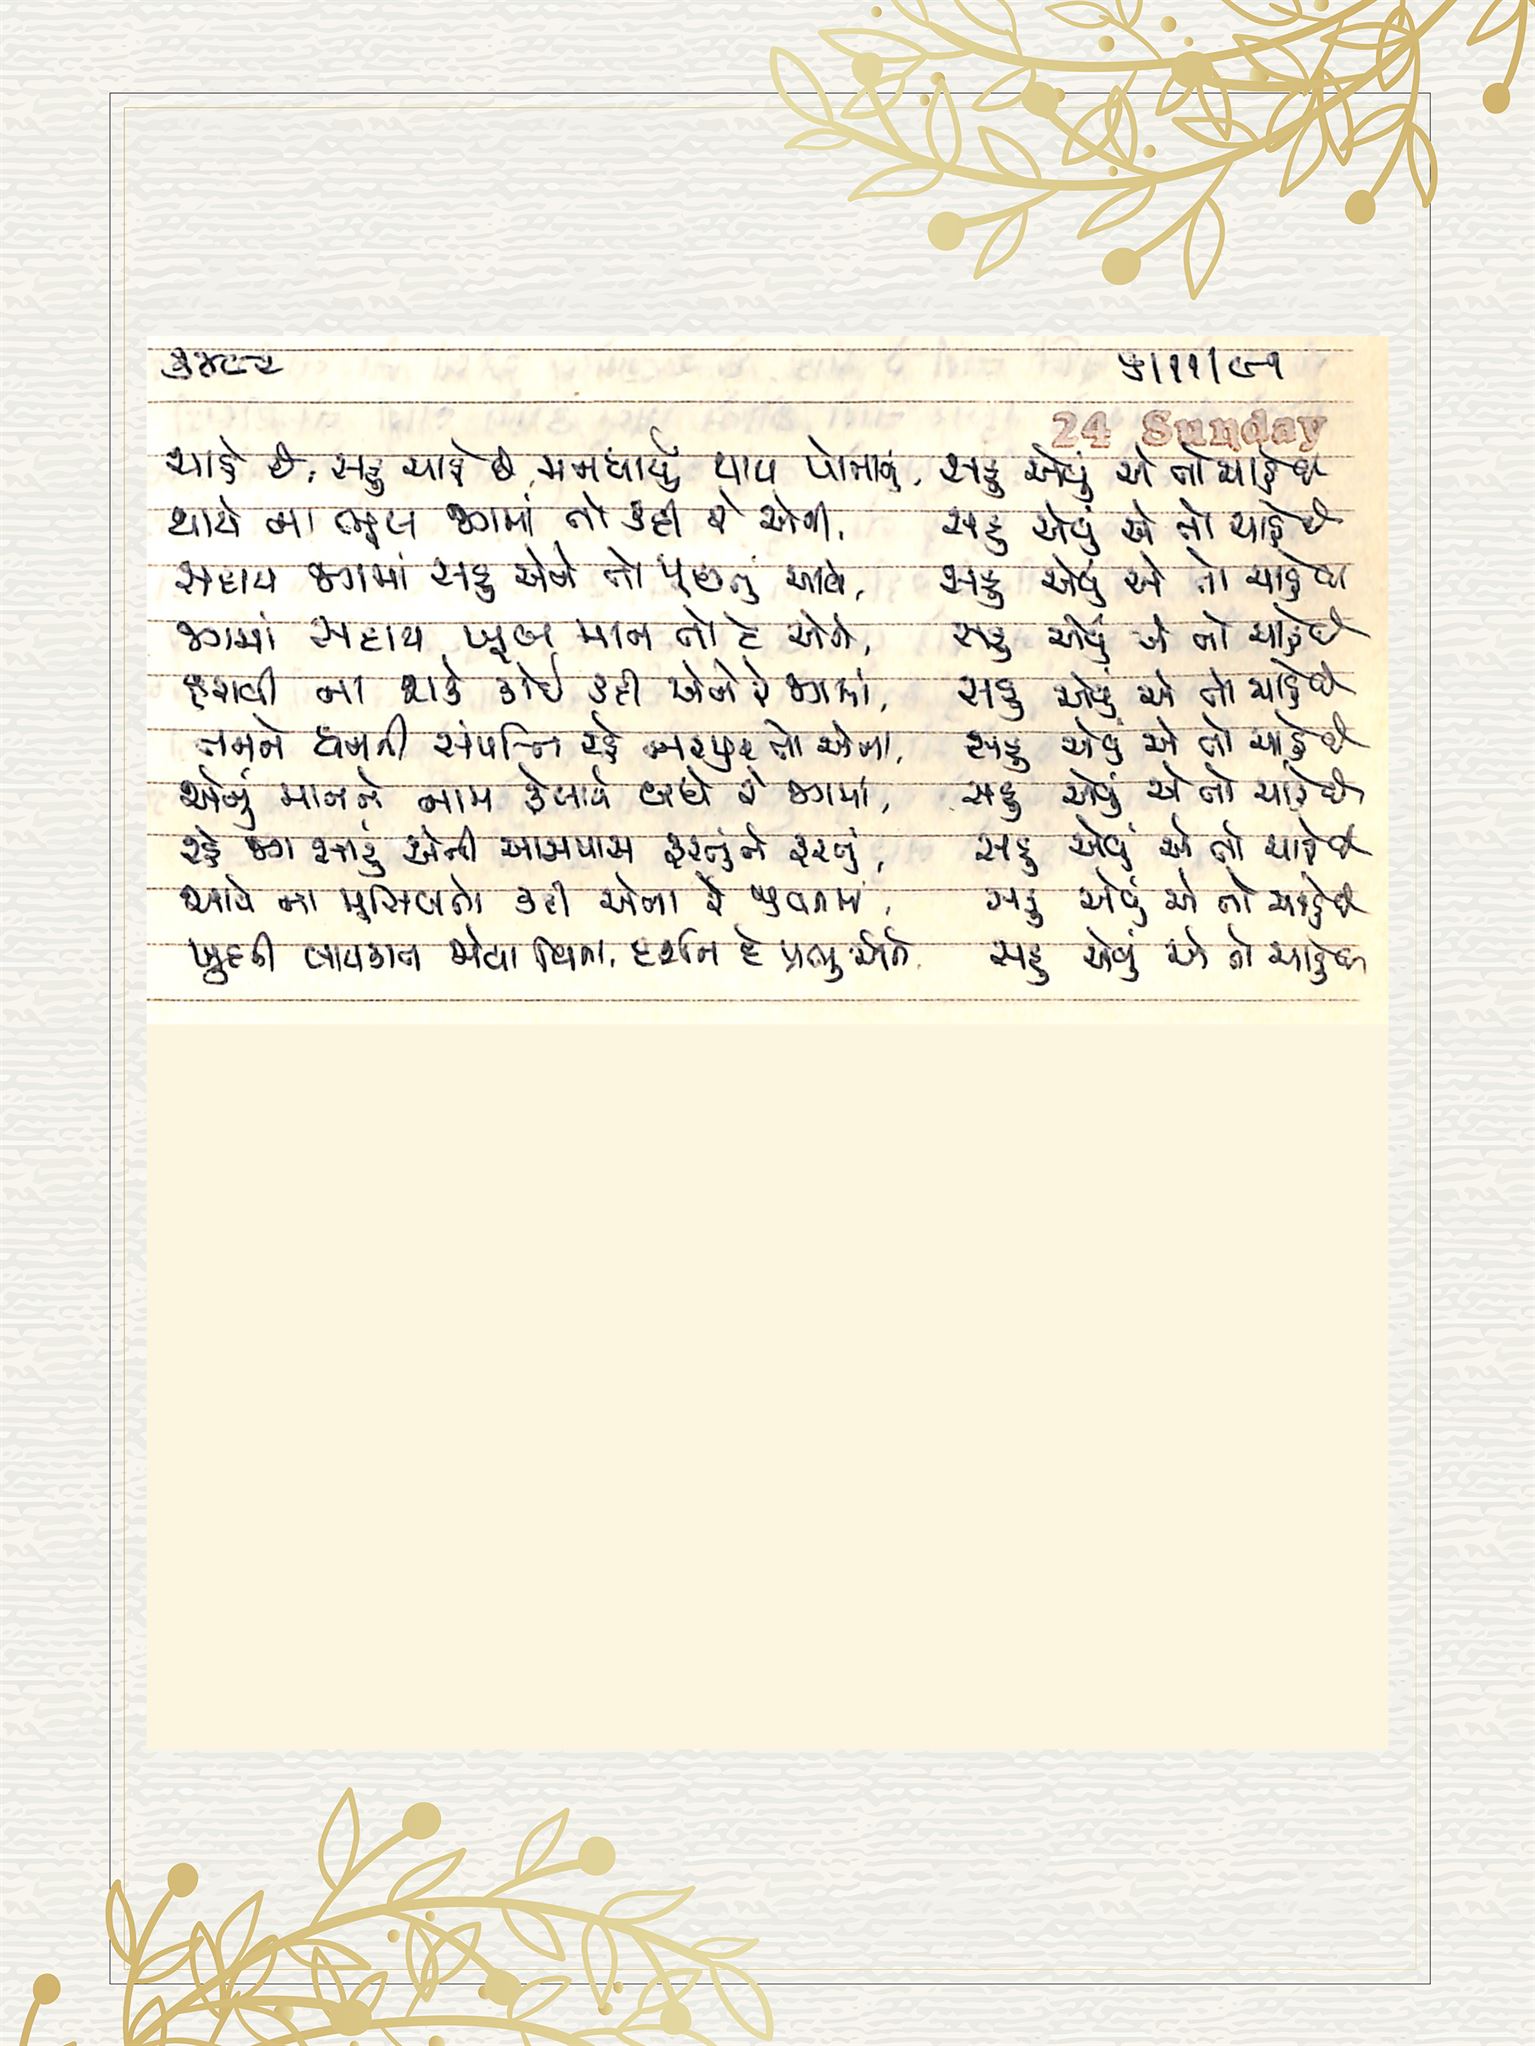 ૩૪૯૨ ૫/૧૧/૯૧
24 Sunday
ચાહે છે, સહુ ચાહે છે, મનધાર્યું થાય પોતાનું, સહુ એવું એ તો ચાહે છે
થાયે ના ભૂલ જગમાં તો કદી રે એની, સહુ એવું એ તો ચાહે છે
સદાય જગમાં સહુ એને તો પૂછતું આવે, સહુ એવું એ તો ચાહે છે
જગમાં સદાય ખૂબ માન તો દે એને, સહુ એવું એ તો ચાહે છે
હરાવી ના શકે કોઈ કદી એને રે જગમાં, સહુ એવું એ તો ચાહે છે
તનને ધનની સંપત્તિ રહે ભરપુર તો એના, સહુ એવું એ તો ચાહે છે
એનું માનને નામ ફેલાયે બધે રે જગમાં, સહુ એવું એ તો ચાહે છે
રહે જગ સારું એની આસપાસ ફરતુંને ફરતું, સહુ એવું એ તો ચાહે છે
આવે ના મુસિબતો કદી એના રે જીવનમાં, સહુ એવું એ તો ચાહે છે
ખુદની લાયકાત કેળવ્યા વિના, દર્શન દે પ્રભુ એને સહુ એવું એ તો ચાહે છે